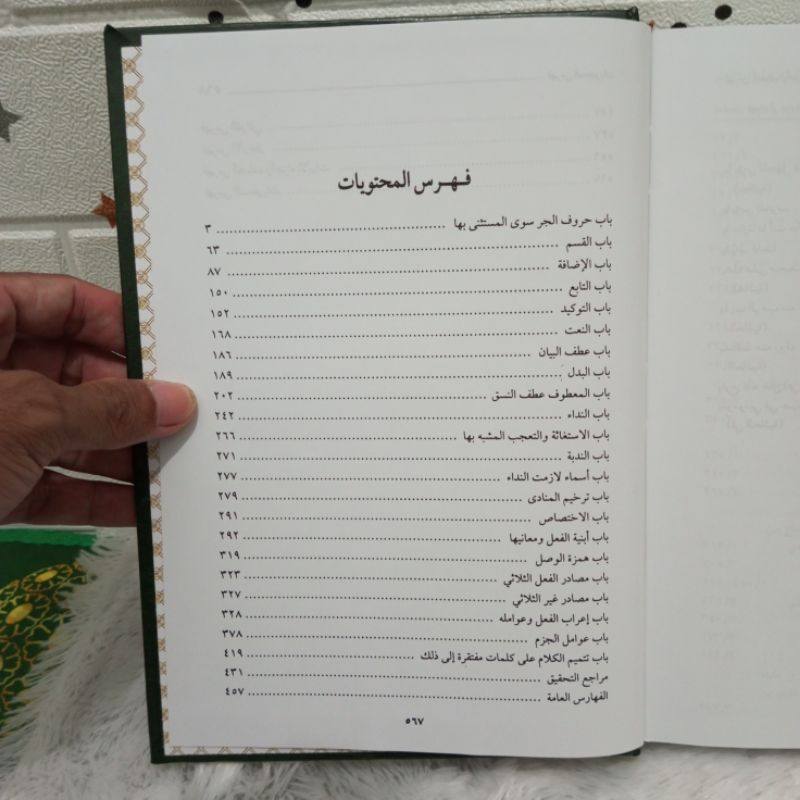 فهرس المحتويات
باب حروف الجر سوى المستثنى بها ٣
باب القسم ٦٣
باب الإضافة ٨٧
باب التابع ١٥٠
باب التوكيد ١٥٢
باب النعت ١٦٨
باب عطف البيان ١٨٦
باب البدل ١٨٩
باب المعطوف عطف النسق ٢٠٢
باب النداء ٢٤٢
باب الاستغاثة والتعجب المشبه بها ٢٦٦
باب الندبة ٢٧١
باب أسماء لازمت النداء ٢٧٧
باب ترخيم المنادى ٢٧٩
باب الاختصاص ٢٩١
باب أبنية الفعل ومعانيها ٢٩٢
باب همزة الوصل ٣١٩
باب مصادر الفعل الثلاثي ٣٢٣
باب مصادر غير الثلاثي ٣٢٧
باب إعراب الفعل وعوامله ٣٢٨
باب عوامل الجزم ٣٧٨
باب تتميم الكلام على كلمات مفتقرة إلى ذلك ٤١٩
مراجع التحقيق ٤٣١
الفهارس العامة ٤٥٧
٥٦٧